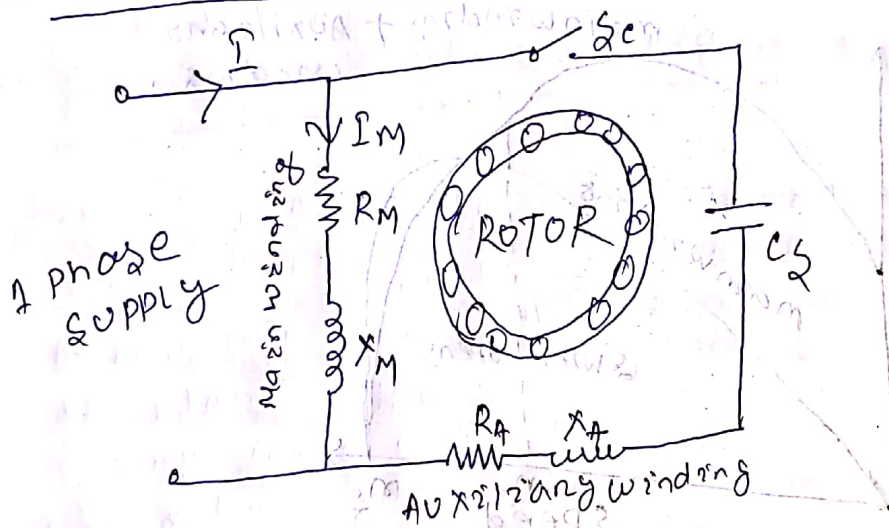 I
Sc
IM
RM
Main winding
ROTOR
1 phase
SUPPLY
CS
XM
RA
XA
Auxiliary winding